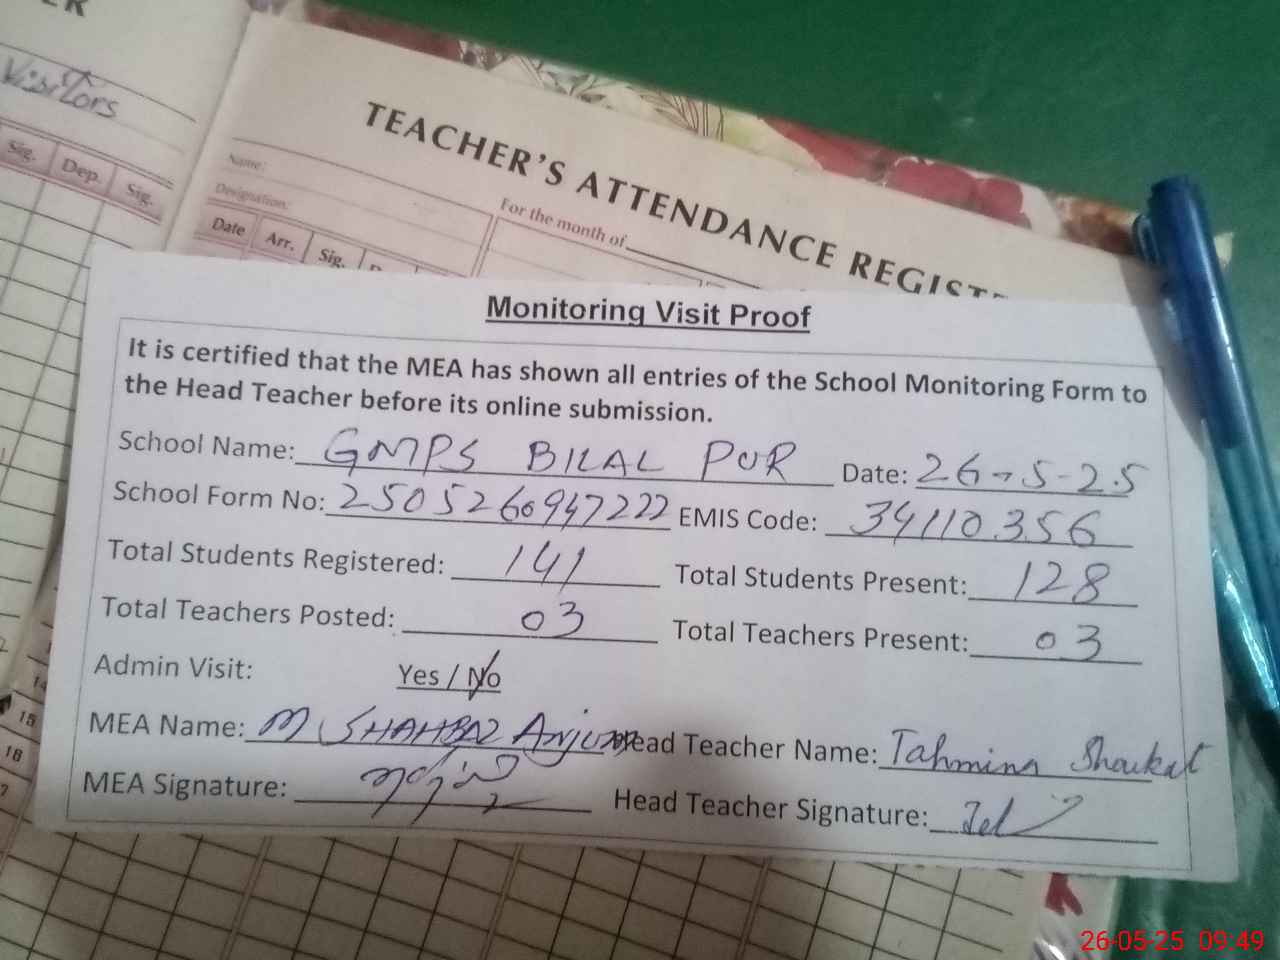 ER
Visitors
Sig. Dep. Sig.
TEACHER'S ATTENDANCE REGIST
Name:
Designation:
For the month of
Date Arr. Sig.
Monitoring Visit Proof
It is certified that the MEA has shown all entries of the School Monitoring Form to
the Head Teacher before its online submission.
School Name: GMPS BILAL PUR Date: 26-5-25
School Form No: 2505260947222 EMIS Code: 34110356
Total Students Registered: 141 Total Students Present: 128
Total Teachers Posted: 03 Total Teachers Present: 03
Admin Visit: Yes / No
MEA Name: M SHAHBAZ Anjum Head Teacher Name: Tahmina Shaukat
MEA Signature: Head Teacher Signature:
15
16
26-05-25 09:49